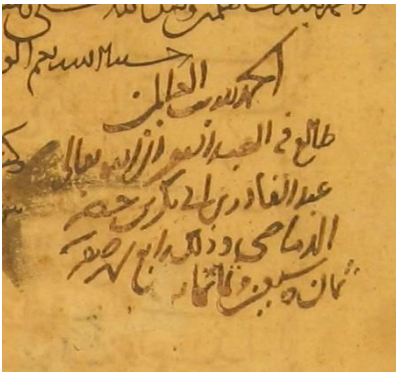 حسبنا الله ونعم الو
الحمد لله رب العالمين
طالع في العبد الفقير الى الله تعالى
عبد القادر بن ابي بكر بن خضر
الدماصي وذلك رابع شهر صفر
ثمان وسبعين وثمانمائة